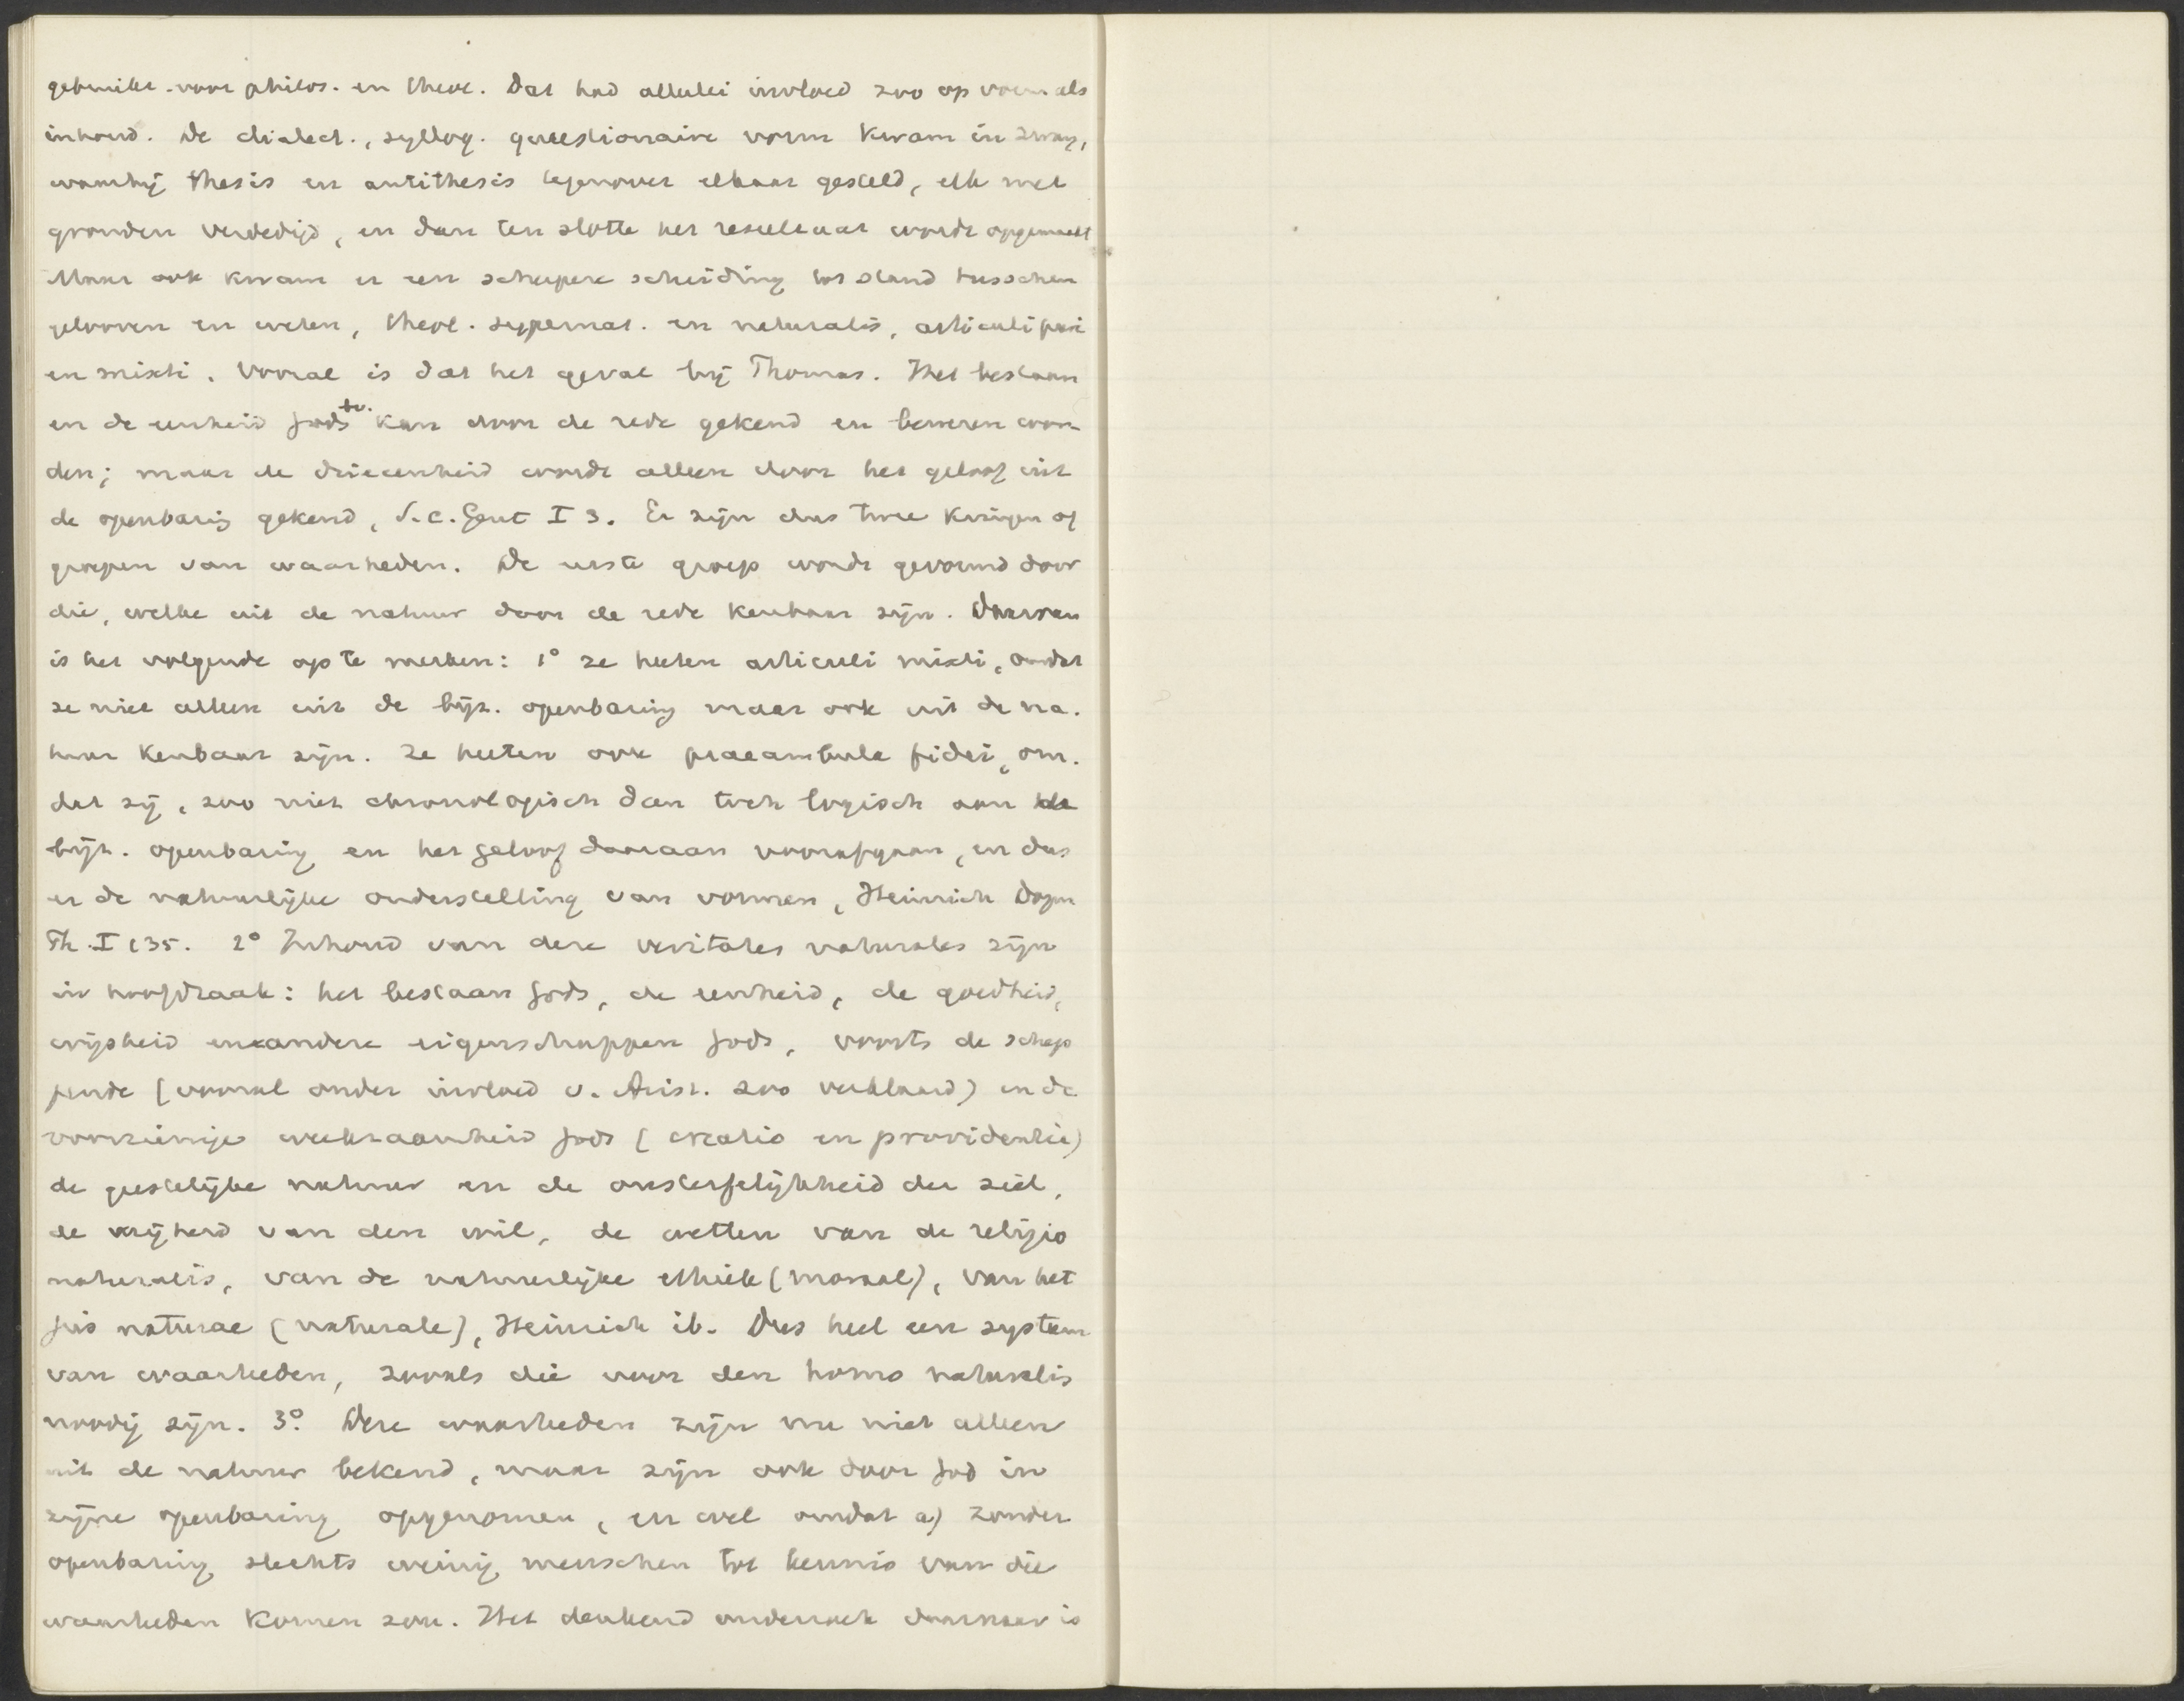 gebruikt voor philos. en theol. Dat had allerlei invloed zoo op vorm als
inhoud. De dialect., syllog. quaestionaire vorm kwam in zwang,
waarbij thesis en antithesis tegenover elkaar gesteld, elk met
gronden verdedigd, en dan ten slotte het resultaat wordt opgemaakt
Maar ook kwam er een scherpere scheiding tot stand tusschen
gelooven en weten, theol. supernat. en naturalis, articuli puri
en mixti. Vooral is dat het geval bij Thomas. Het bestaan
en de eenheid Gods bv. kan door de rede gekend en bewezen wor-
den; maar de drieeenheid wordt alleen door het geloof uit
de openbaring gekend, S. c. Gent I 3. Er zijn dus twee kringen of
groepen van waarheden. De eerste groep wordt gevormd door
die, welke uit de natuur door de rede kenbaar zijn. Daarvan
is het volgende op te merken: 1° ze heeten articuli mixti, omdat
ze niet alleen uit de bijz. openbaring maar ook uit de na-
tuur kenbaar zijn. Ze heeten ook praeambula fidei, om-
dat zij, zoo niet chronologisch dan toch logisch aan de
bijz. openbaring en het geloof daaraan voorafgaan, en dus
er de natuurlijke onderstelling van vormen, Heinrich Dogm
Th. I 135. 2° Inhoud van deze veritates naturales zijn
in hoofdzaak: het bestaan Gods, de eenheid, de goedheid,
wijsheid en andere eigenschappen Gods, voorts de schep
pende (vooral onder invloed v. Arist. zoo verklaard) en de
voorzienige werkzaamheid Gods (creatio en providentia)
de geestelijke natuur en de onsterfelijkheid der ziel,
de vrijheid van den wil, de wetten van de religio
naturalis, van de natuurlijke ethiek (moraal), van het
jus naturae (naturale), Heinrich ib. Dus heel een systeem
van waarheden, zooals die voor den homo naturalis
noodig zijn. 3° Deze waarheden zijn nu niet alleen
uit de natuur bekend, maar zijn ook door God in
zijne openbaring opgenomen, en wel omdat a) zonder
openbaring slechts weinig menschen tot kennis van die
waarheden komen zou. Het denkend onderzoek daarnaar is